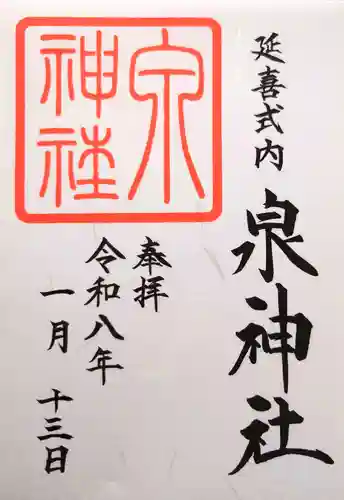 延喜式内
泉神社
泉
神社
奉拝
令和八年
一月 十三日